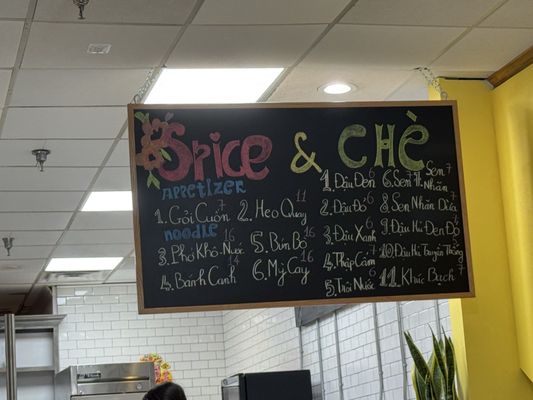 Spice & CHÈ
APPETIZER
1. Gỏi Cuốn 7
2. Heo Quay 11
NOODLE
3. Phở Khô - Nước 16
4. Bánh Canh 14
5. Bún Bò 16
6. Mỳ Cay 16
1. Đậu Đen 6
2. Đậu Đỏ 6
3. Đậu Xanh 6
4. Thập Cẩm 6
5. Thôi Nước 6
6. Sen Nhãn 7
7. Sen
8. Sen Nhãn Dừa 7
9. Đậu Hũ Đen Đỏ
10. Đậu Hũ Truyền Thống
11. Khúc Bạch 7